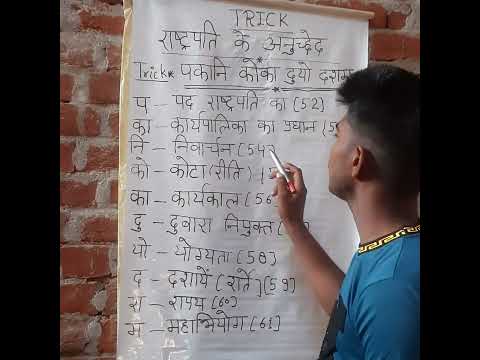 TRICK
राष्ट्रपति के अनुच्छेद
Trick* पकानि कोका दुयो दशसम
प - पद राष्ट्रपति का (52)
का - कार्यपालिका का प्रधान (5
नि - निर्वाचन (54)
को - कोटा (रीति)
का - कार्यकाल (56
दु - दुवारा नियुक्त (
यो - योग्यता (58)
द - दशायें (शर्ते) (59)
स - शपथ (60)
म - महाभियोग (61)